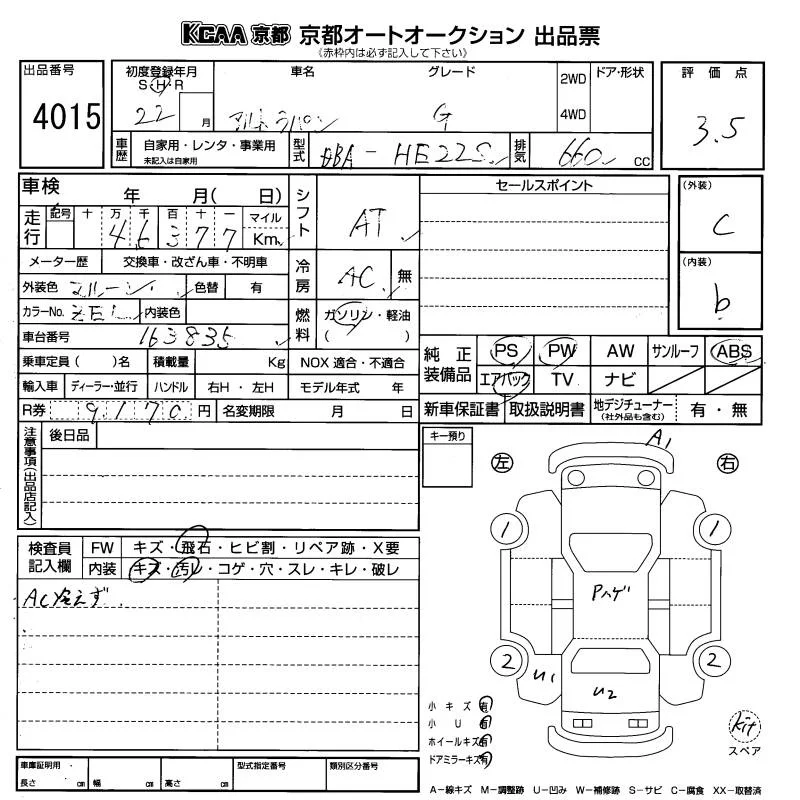 KCAA 京都 京都オートオークション 出品票
《赤枠内は必ず記入して下さい》
出品番号 4015
初度登録年月 車名 グレード 2WD ドア・形状 評価点
S H R
22 月 アルトラパン G 4WD 3.5
車歴 自家用・レンタ・事業用 未記入は自家用 型式 DBA-HE22S 排気 660 CC
車検 年 月( 日) シフト AT セールスポイント (外装) C
走行 記号 十 万 千 百 十 一 マイル
4 6 3 7 7 Km
メーター歴 交換車・改ざん車・不明車 冷房 AC 無 (内装) b
外装色 マルーン 色替 有
カラーNo. ZEL 内装色 燃料 ガソリン・軽油
( )
車台番号 163835
乗車定員 ( )名 積載量 Kg NOX 適合・不適合
純正装備品 PS PW AW サンルーフ ABS
エアバック TV ナビ
輸入車 ディーラー・並行 ハンドル 右H・左H モデル年式 年
R券 9170 円 名変期限 月 日
新車保証書 取扱説明書 地デジチューナー (社外品も含む) 有・無
注意事項(出品店記入) 後日品
キー預り
A1
左 右
1 1
検査員記入欄 FW キズ・飛石・ヒビ割・リペア跡・X要
内装 キズ・汚レ・コゲ・穴・スレ・キレ・破レ
AC冷えず
Pハゲ
2 U1 2
U2
小キズ 有
小U 有
ホイールキズ 有
ドアミラーキズ 有
kit
スペア
車庫証明用 長さ cm 幅 cm 高さ cm 型式指定番号 類別区分番号
A-線キズ M-調整跡 U-凹み W-補修跡 S-サビ C-腐食 XX-取替済